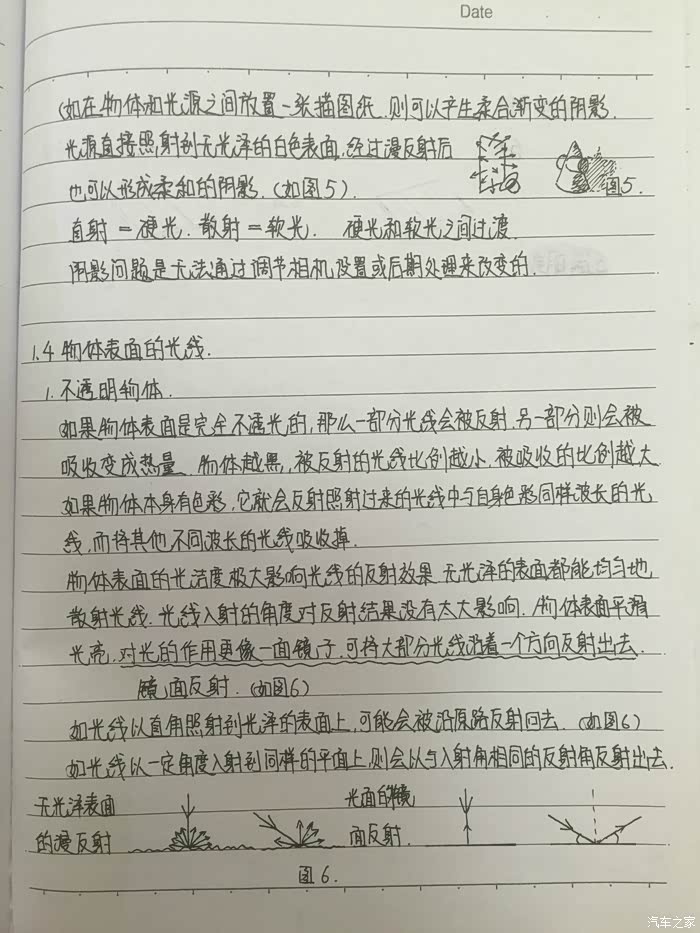 Date
(如在物体和光源之间放置一张描图纸,则可以产生柔合渐变的阴影.
光源直接照射到无光泽的白色表面,经过漫反射后
也可以形成柔和的阴影.(如图5).
图5.
直射=硬光.散射=软光. 硬光和软光之间过渡.
阴影问题是无法通过调节相机设置或后期处理来改变的.
1.4 物体表面的光线.
1.不透明物体.
如果物体表面是完全不透光的,那么一部分光线会被反射,另一部分则会被
吸收变成热量.物体越黑,被反射的光线比例越小,被吸收的比例越大.
如果物体本身有色彩,它就会反射照射过来的光线中与自身色彩同样波长的光
线,而将其他不同波长的光线吸收掉.
物体表面的光洁度极大影响光线的反射效果.无光泽的表面都能均匀地
散射光线.光线入射的角度对反射结果没有太大影响.物体表面平滑
光亮,对光的作用更像一面镜子,可将大部分光线沿着一个方向反射出去.
镜面反射.(如图6)
如光线以直角照射到光泽的表面上,可能会被沿原路反射回去.(如图6)
如光线以一定角度入射到同样的平面上,则会以与入射角相同的反射角反射出去.
无光泽表面
的漫反射
光面的镜
面反射.
图6.
汽车之家